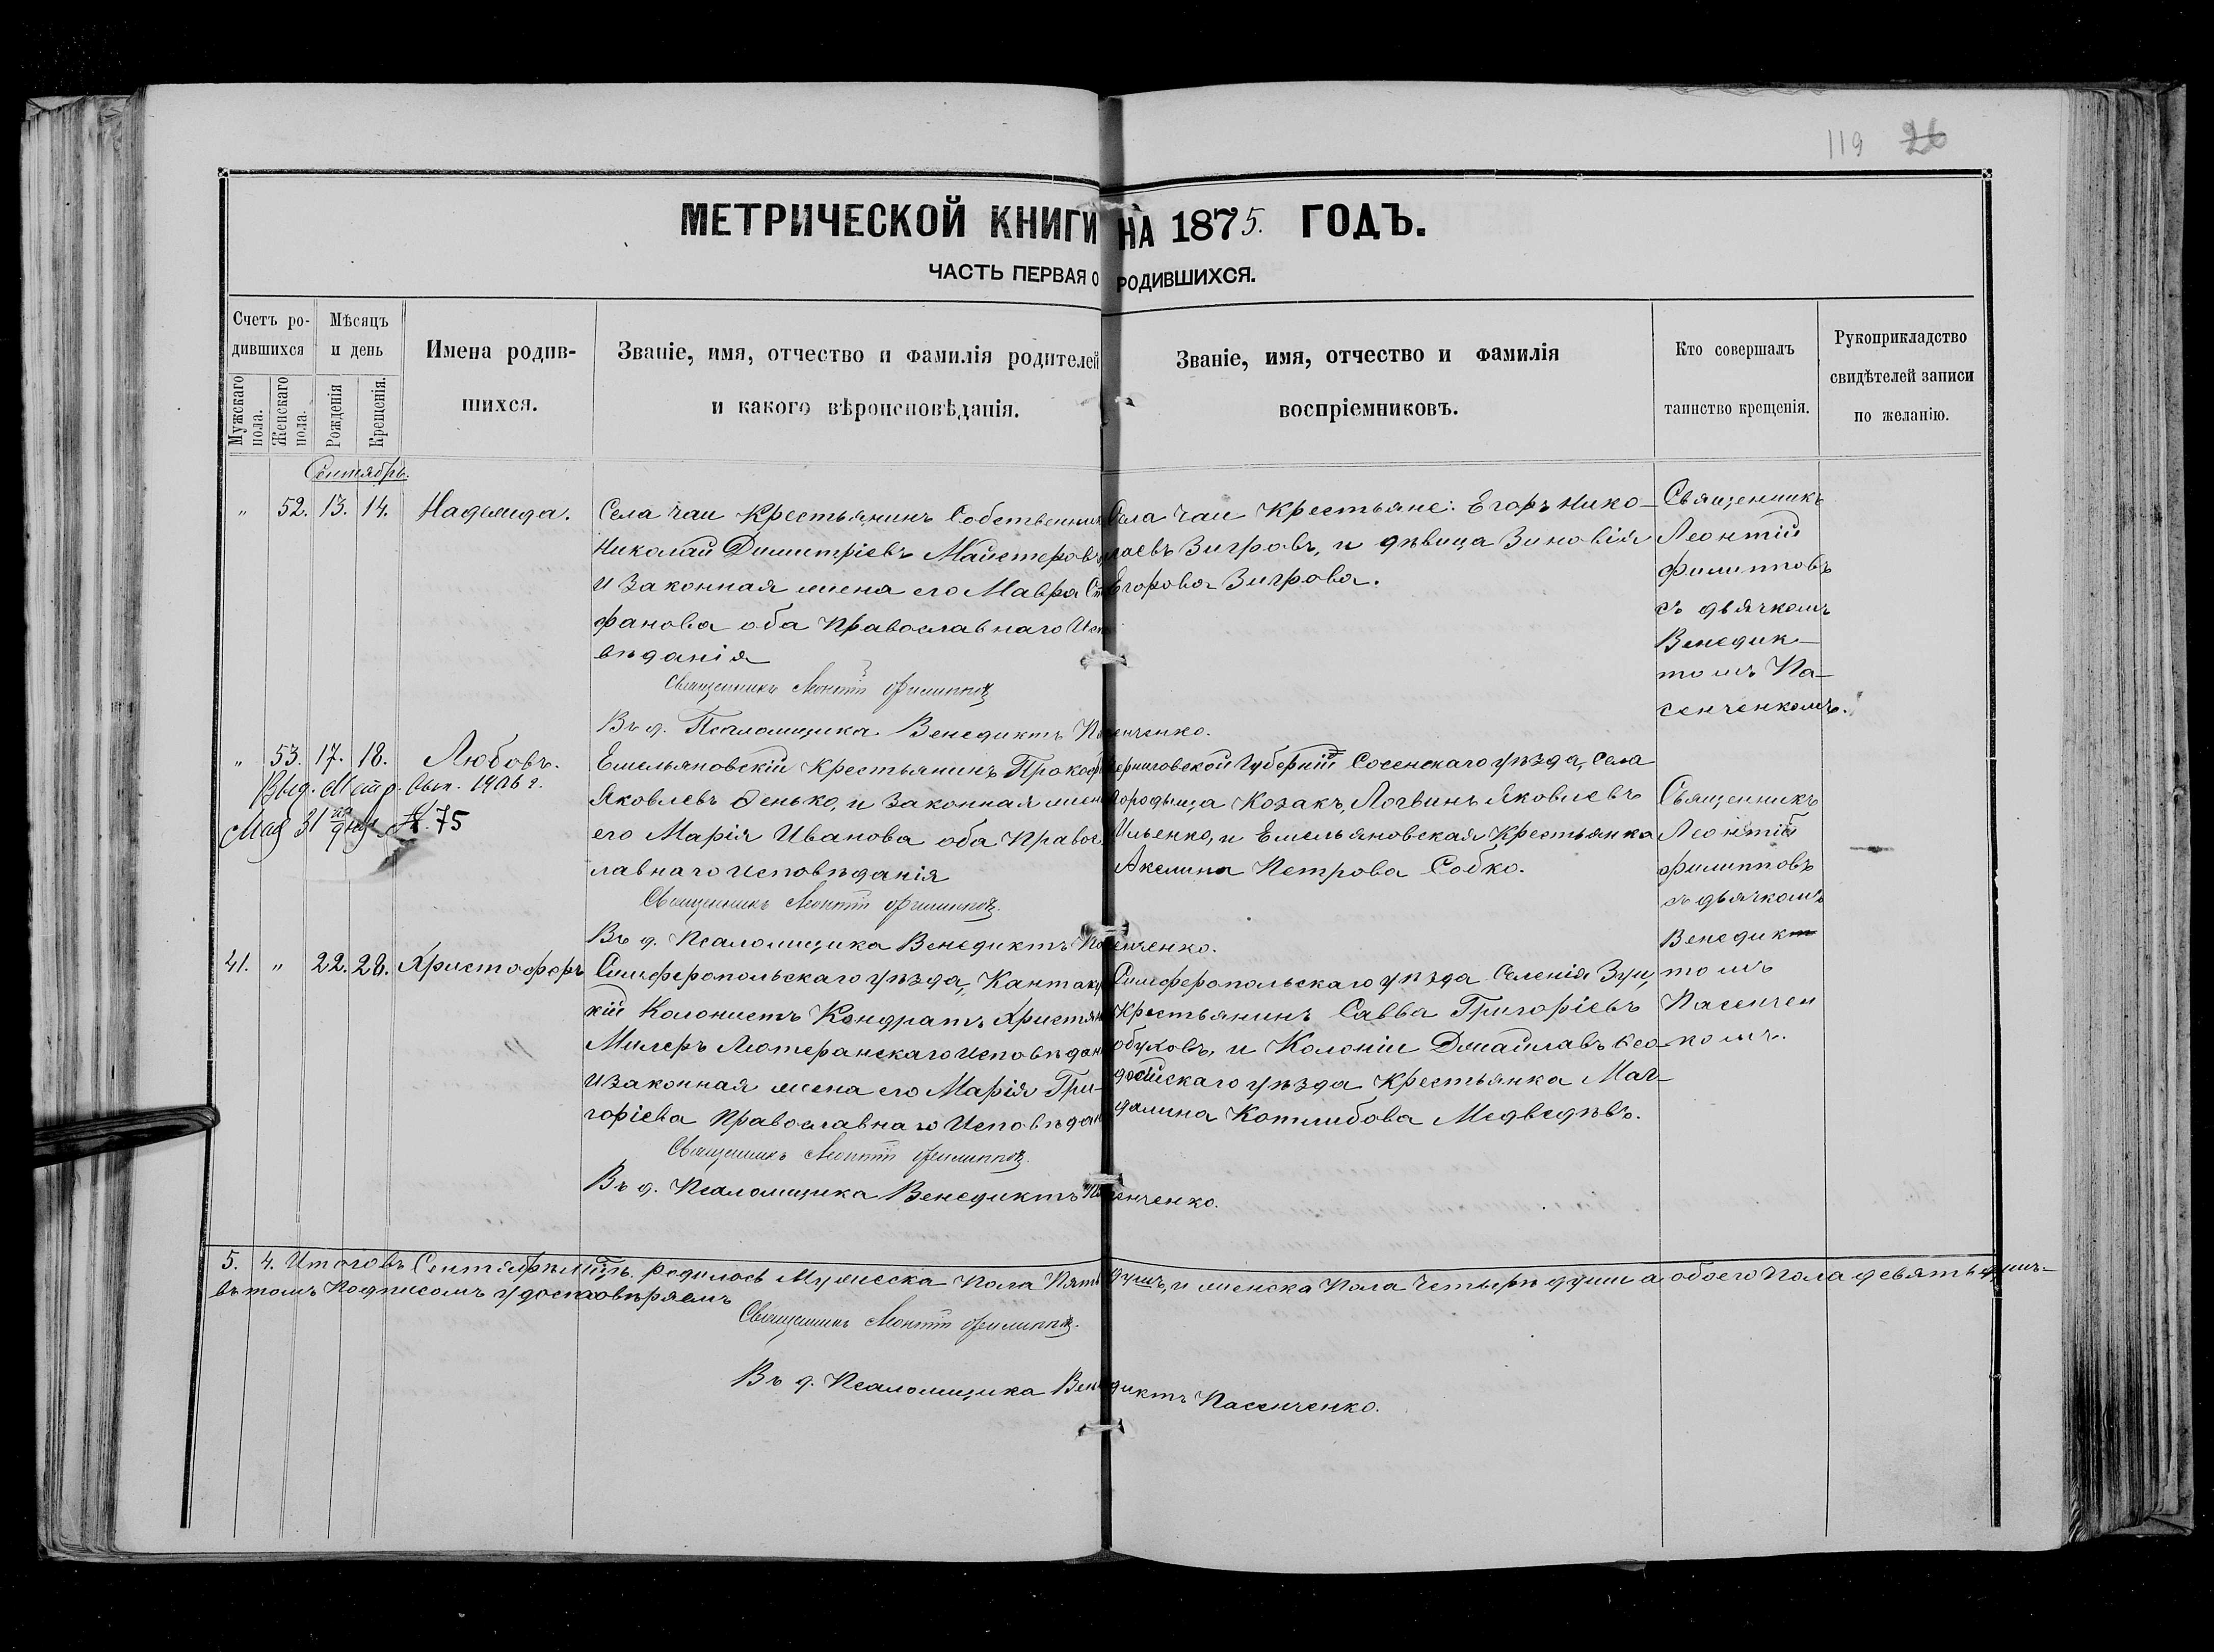 119 26
МЕТРИЧЕСКОЙ КНИГИ НА 1875. ГОДЪ.
ЧАСТЬ ПЕРВАЯ О РОДИВШИХСЯ.
Счетъ ро-
дившихся
Мужскаго пола.
Женскаго пола.
Мѣсяцъ
и день
Рожденія
Крещенія.
Имена родив-
шихся.
Званіе, имя, отчество и фамилія родителей
и какого вѣроисповѣданія.
Званіе, имя, отчество и фамилія
воспріемниковъ.
Кто совершалъ
таинство крещенія.
Рукоприкладство
свидѣтелей записи
по желанію.
Сентябрь.
" 52. 13. 14. Надежда.
Села Чаи Крестьянинъ Собственник
Николай Димитріевъ Майстеровъ
и Законная жена его Мавра Сте
фанова оба Православнаго Испо
вѣданія
Священникъ Леонтій Филипповъ
Въ д. Псаломщика Венедиктъ Пасенченко.
Села Чаи Крестьяне: Егоръ Нико-
лаевъ Зигровъ, и дѣвица Зиновія
Егорова Зигрова.
Священникъ
Леонтій
Филипповъ
съ дьячкомъ
Венедик-
томъ Па-
сенченкомъ.
" 53. 17. 18. Любовь.
Выд. Метр. Вып. 1906 г.
Мая 31 го дня № 75
Емельяновскій Крестьянинъ Прокоф
Яковлевъ Денько, и Законная жена
его Марія Иванова оба Правос
лавнаго Исповѣданія
Священникъ Леонтій Филипповъ.
Въ д. Псаломщика Венедиктъ Пасенченко.
Черниговской Губерніи Сосенскаго уѣзда, Села
Городища Козакъ, Логвинъ Яковлевъ
Ильенко, и Емельяновская Крестьянка
Акелина Петрова Собко.
Священникъ
Леонтій
Филипповъ
съ дьячкомъ
Венедик
томъ
Пасенчен
комъ.
41. " 22. 28. Христофоръ
Симферопольскаго уѣзда, Кантаку
кій Колонистъ Кондратъ Христян
Милеръ Лютеранскаго Исповѣдан
и Законная жена его Марія Гри-
горіева Православнаго Исповѣдан
Священникъ Леонтій Филипповъ.
Въ д. Псаломщика Венедиктъ Пасенченко.
Симферопольскаго уѣзда Селенія Зуи,
Крестьянинъ Савва Григоріевъ
Обуховъ, и Колоніи Джайлавъ Ѳео-
досійскаго уѣзда Крестьянка Маг-
далина Готлибова Медведѣвъ.
5. 4. Итого въ Сентябрѣ мцѣ. родилось Мужеска Пола Пять душъ, и женска Пола Четыре души а обоего Пола девять душъ-
въ томъ Подписомъ удостовѣряемъ
Священникъ Леонтій Филипповъ.
Въ д. Псаломщика Венедиктъ Пасенченко.